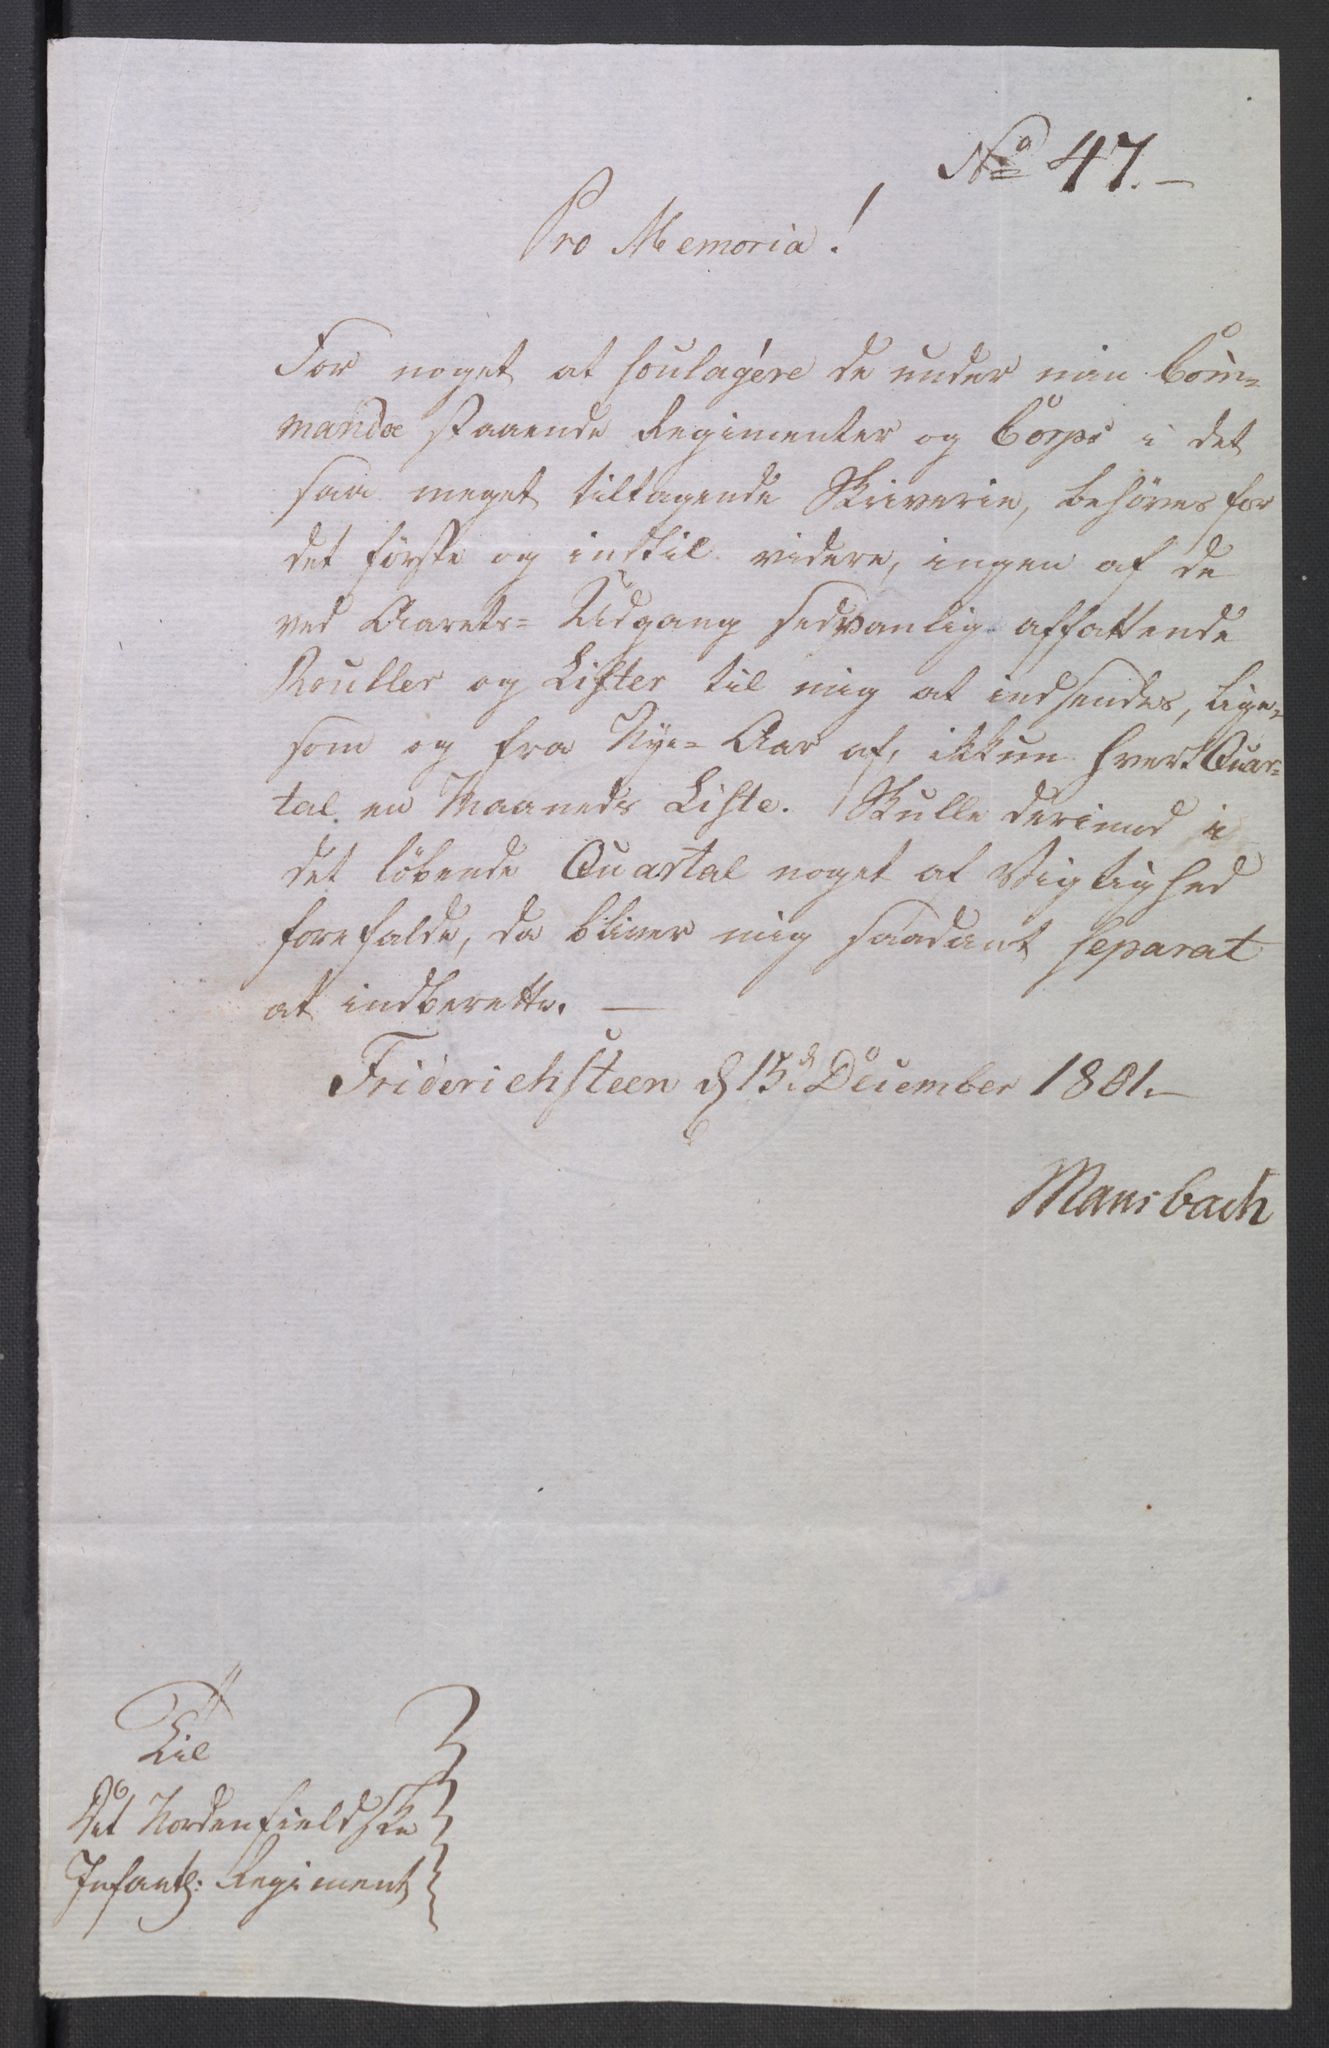 No 47.-
Pro Memoria!
For noget at soulagére de under min Com-
mando staaende Regimenter og Corps i det
saa meget tiltagende Skriverie, behöves for
det förste og indtil videre, ingen af de
ved Aarets-Udgang sedvanlig affattende
Rouller og Lister til mig at indsendes, lige-
som og fra Nye-Aar af, ikkun hvert Quar-
tal en Maaneds Liste. Skulle derimod i
det löbende Quartal noget af Vigtighed
forefalde, da bliver mig saadant separat
at indberette. —
Friderichsteen d 15d December 1801.-
Mansbach
Til
Det Nordenfieldske
Infant: Regiment